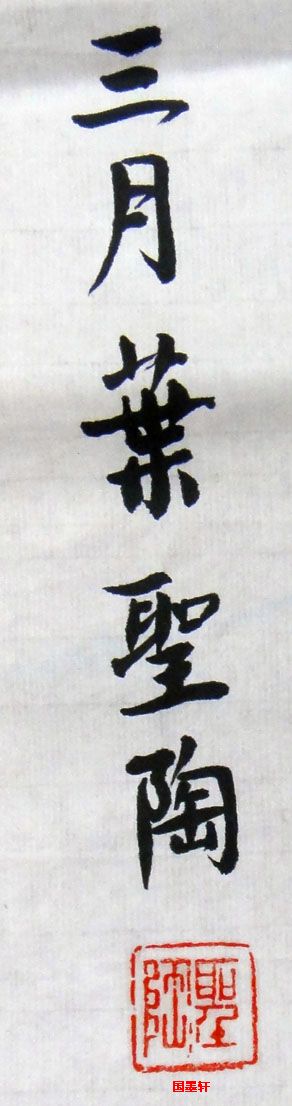 三月葉聖陶
聖陶
国墨轩